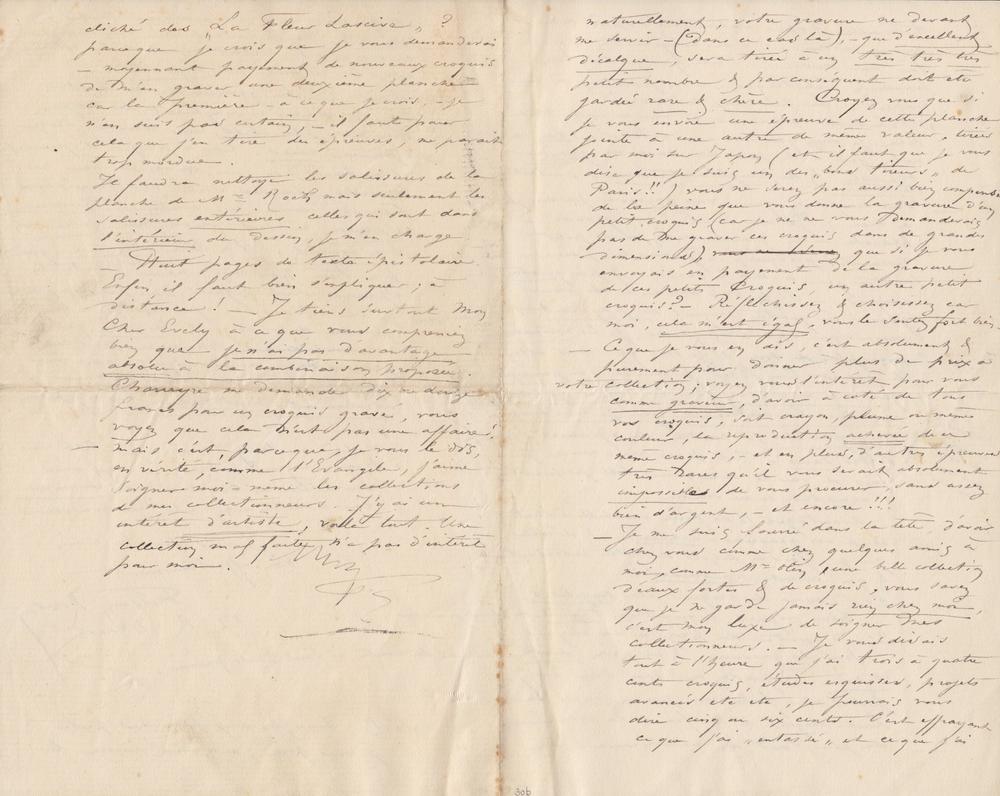 cliché des „La Fleur Lascive" ?
parceque je crois que je vous demanderai
– moyennant payement de nouveaux croquis
de m'en graver une deuxième planche
car la première – à ce que je crois, – je
n'en suis pas certain, – il faut pour
cela que j'en tire des épreuves, me paraît
trop mordue.
Il faudra nettoyer les salissures de la
planche de Mme mais seulement les
salissures extérieures celles qui sont dans
l'intérieur du dessin, je m'en charge
Huit pages de texte épistolaire.
Enfin, il faut bien s'expliquer, à
distance ! – Je tiens surtout Mon
Cher Evely à ce que vous compreniez
bien que je n'ai pas d'avantage
absolu à la combinaison proposée.
me demande dix ou douze
francs pour un croquis gravé, vous
voyez que cela n'est pas une affaire !
– mais c'est, parceque, je vous le dis,
en vérité, comme l'Evangele, j'aime
soigner moi-même les collections
de mes collectionneurs. J'y ai un
intérêt d'artiste, voila tout. Une
collection mal faite, n'a pas d'intérêt
pour moi.
naturellement, votre gravure ne devant
me servir – (dans ce cas là), – que d'excellent
décalque, sera tirée à un très très très
petit nombre & par conséquent doit etre
gardée rare & chère. Croyez vous que si
je vous envoie une épreuve de cette planche
jointe à une autre de même valeur, tirées
par moi sur Japon (et il faut que je vous
dise que je suis un des „bons tireurs" de
Paris !!) vous ne serez pas aussi bien compensé
de la peine que vous donne la gravure d'un
petit croquis (car je ne vous demanderais
pas de me graver ces croquis dans de grandes
dimensions) que si je vous
envoyais en payement de la gravure
de ces petits Croquis, un autre petit
croquis ? – Réflechissez & choisissez car
moi, cela m'est égal, vous le sentez fort bien.
– Ce que je vous en dis, c'est absolument &
purement pour donner plus de prix à
votre collection ; voyez vous l'intérêt pour vous
comme graveur, d'avoir à coté de tous
vos croquis, soit crayon, plume ou même
couleur, la reproduction achevée de ce
même croquis, – et en plus, d'autres épreuves
très rares qu'il vous serait absolument
impossible de vous procurer, sans assez
bien d'argent, – et encore !!!
– Je me suis fourré dans la tête, d'avoir
chez vous comme chez quelques amis à
moi, comme Mme, une belle collection
d'eaux fortes & de croquis, vous savez
que je ne garde jamais rien chez moi,
c'est mon luxe de soigner mes
collectionneurs. – Je vous disais
tout à l'heure que j'ai trois à quatre
cents croquis, études esquisses, projets
avancés etc etc, je pourrais vous
dire cinq ou six cents. C'est effrayant
ce que j'ai „entassé„ et ce que j'ai
306